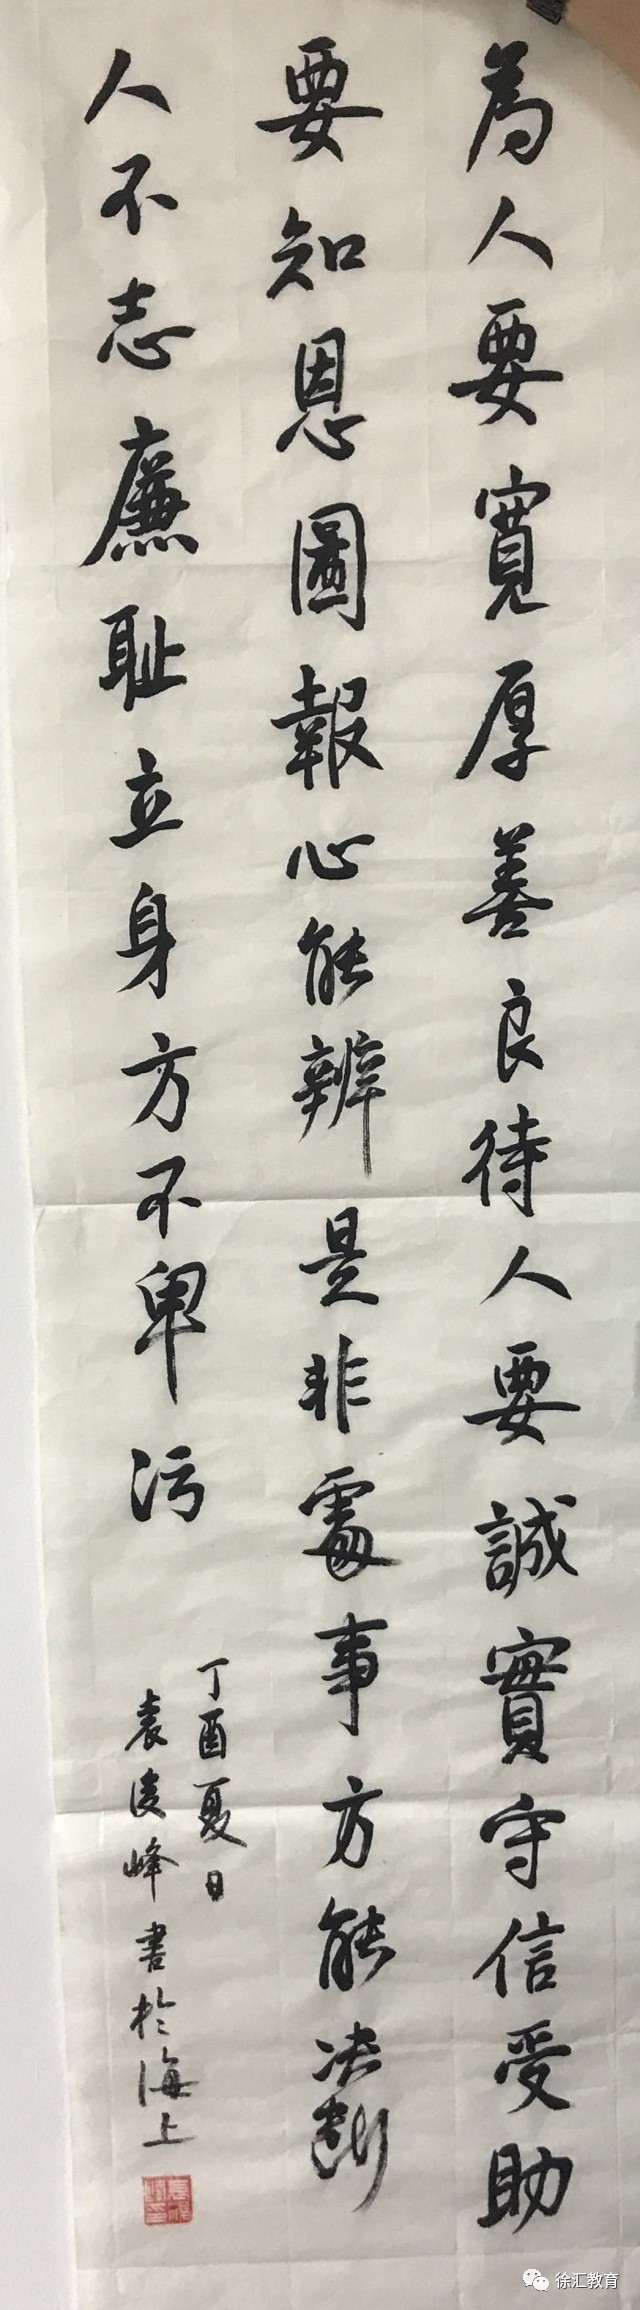 為人要寬厚善良待人要誠實守信受助
要知恩圖報心能辨是非處事方能決斷
人不志廉耻立身方不卑污
丁酉夏日
袁凌峰書於海上
徐汇教育